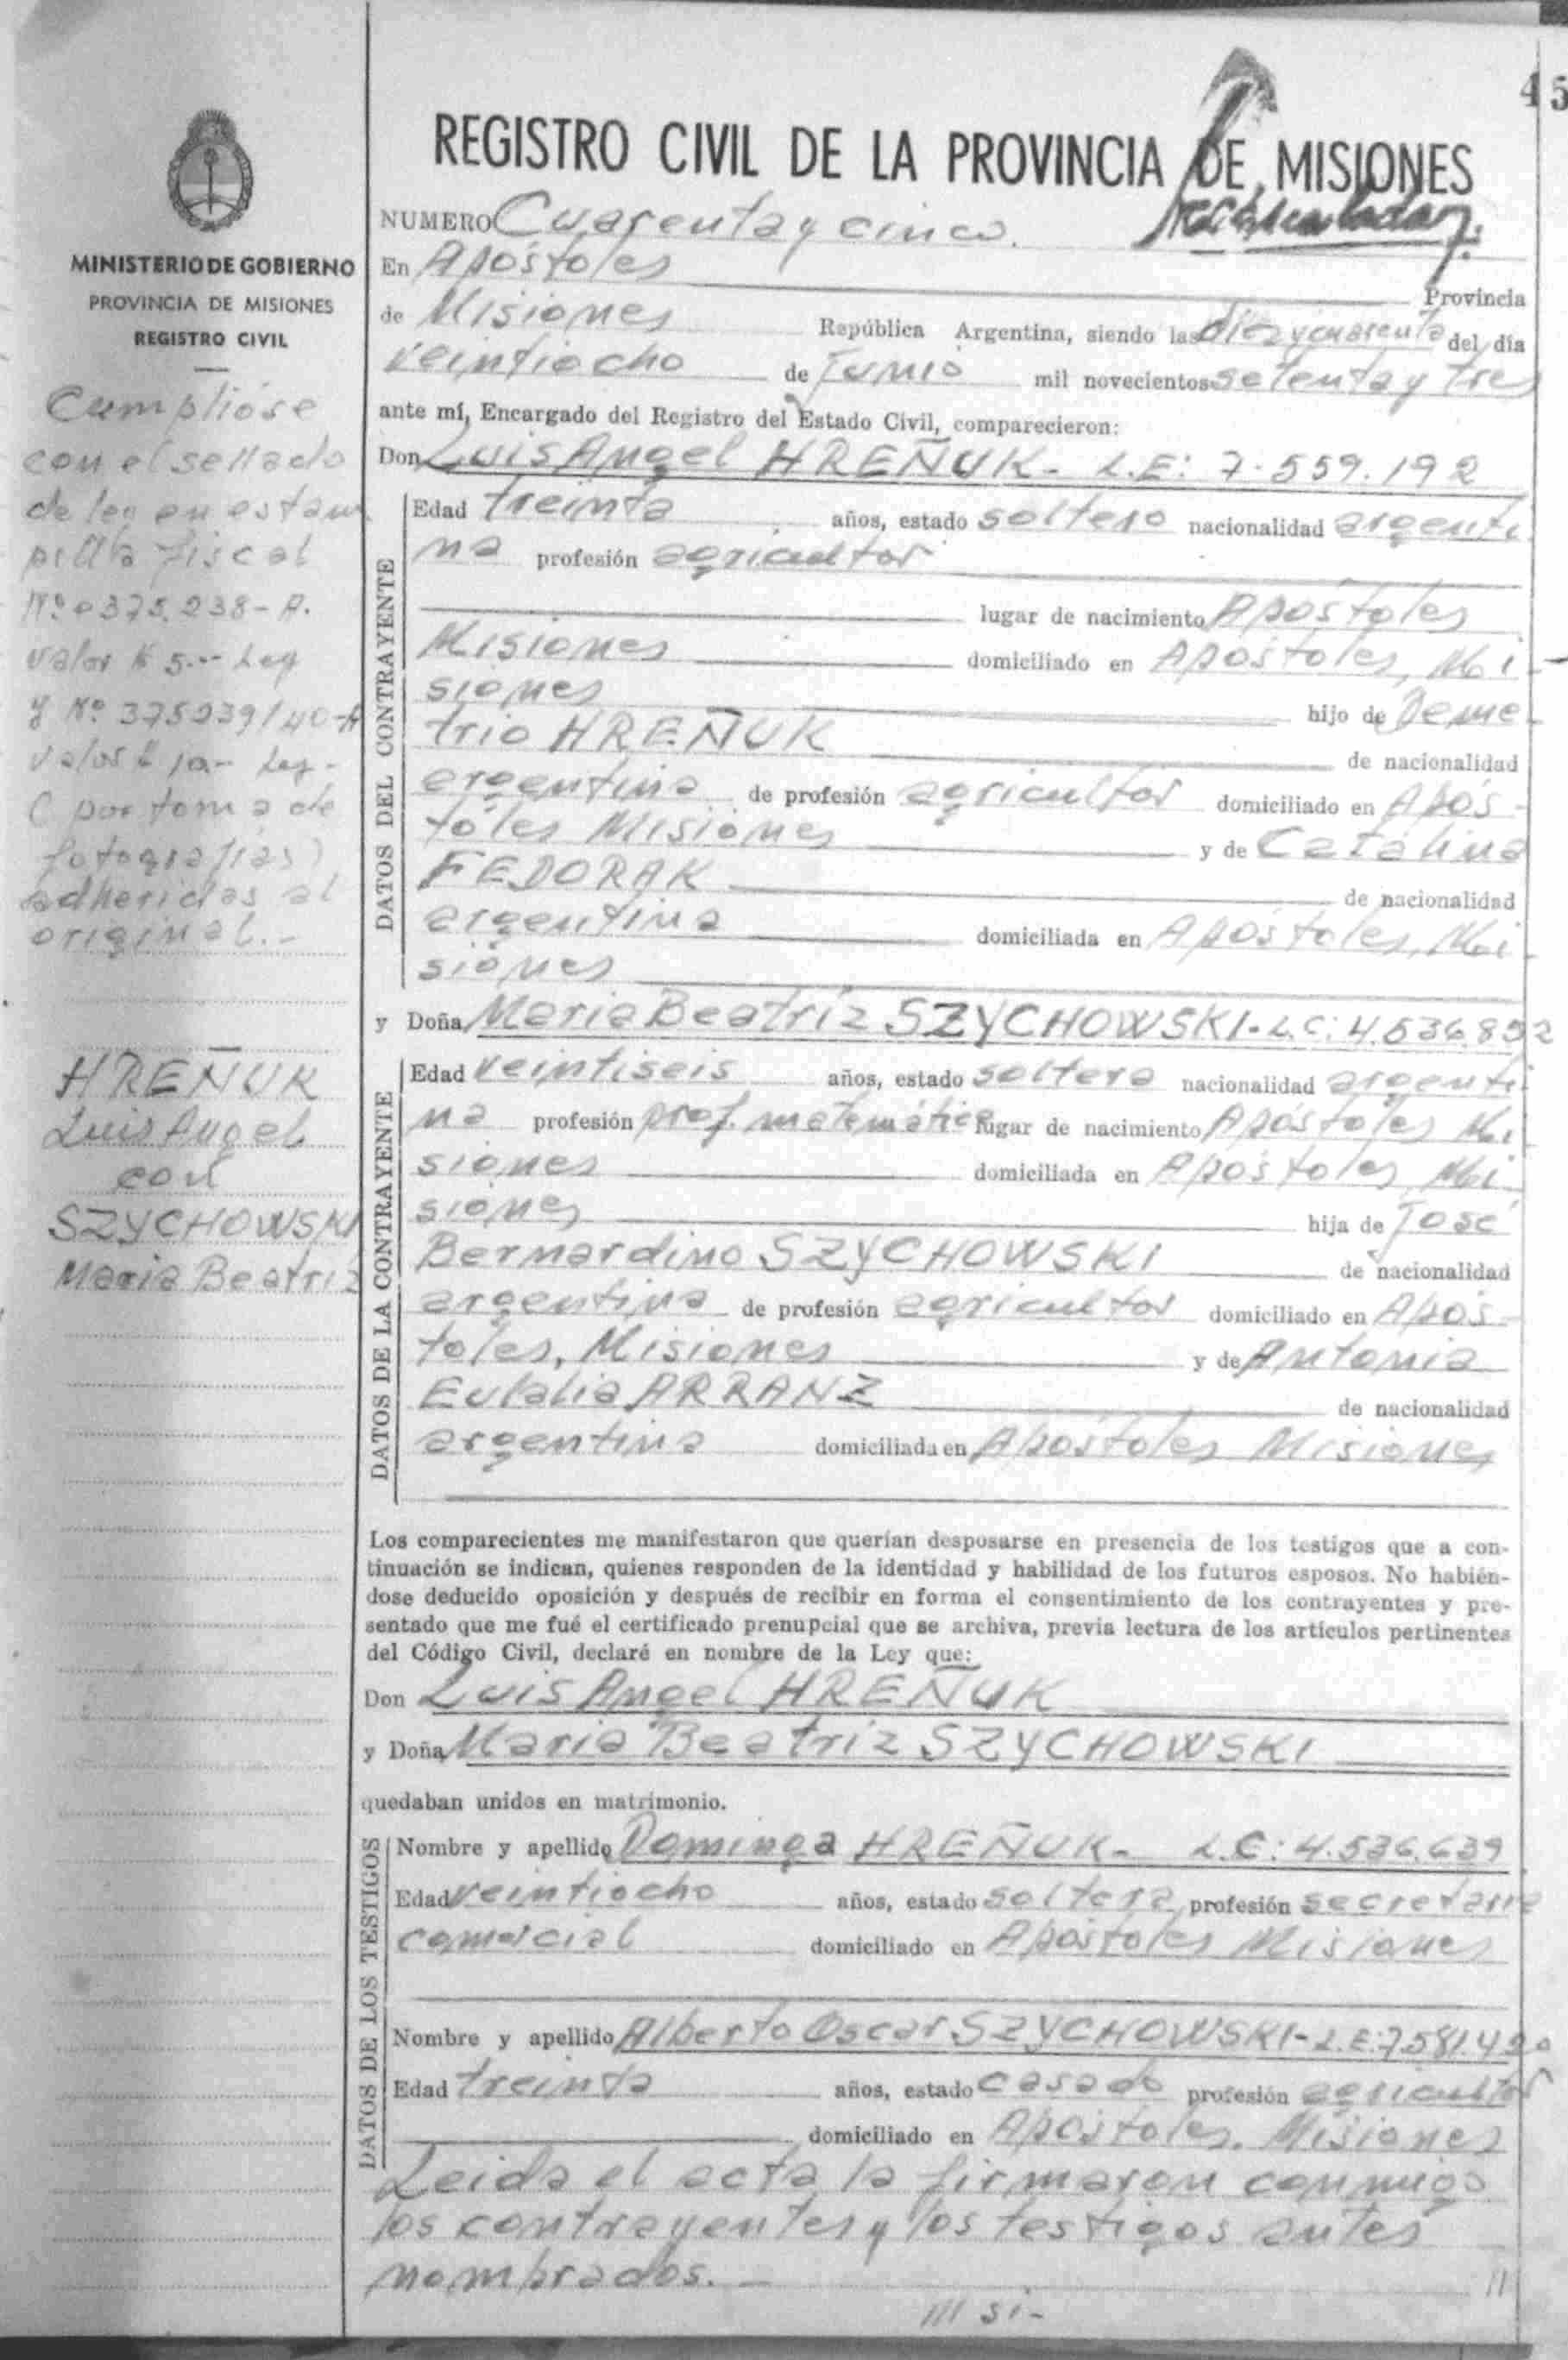 45
REGISTRO CIVIL DE LA PROVINCIA DE MISIONES
MINISTERIO DE GOBIERNO
PROVINCIA DE MISIONES
REGISTRO CIVIL
Cumplióse
con el sellado
de ley en estam
pilla fiscal
Nº 0375.238-A.
valor $ 5.-- Ley
y Nº 375239/40-A
valor $ 10- Ley-
( por toma de
fotografías)
adheridas al
original.-
HREÑUK
Luis Angel
con
SZYCHOWSKI
Maria Beatriz
NUMERO Cuarenta y cinco.
En Apóstoles Provincia
de Misiones República Argentina, siendo las diez y cuarenta del día
veintiocho de Junio mil novecientos setenta y tres
ante mí, Encargado del Registro del Estado Civil, comparecieron:
Don Luis Angel HREÑUK- L.E: 7.559.192
DATOS DEL CONTRAYENTE
Edad treinta años, estado soltero nacionalidad argenti
na profesión agricultor
lugar de nacimiento Apóstoles
Misiones domiciliado en Apóstoles, Mi-
siones hijo de Deme-
trio HREÑUK de nacionalidad
argentina de profesión agricultor domiciliado en Após-
toles Misiones y de Catalina
FEDORAK de nacionalidad
argentina domiciliada en Apóstoles, Mi-
siones
y Doña Maria Beatríz SZYCHOWSKI- L.C: 4.536.852
DATOS DE LA CONTRAYENTE
Edad veintiseis años, estado soltera nacionalidad argenti
na profesión prof. matemática lugar de nacimiento Apóstoles Mi
siones domiciliada en Apóstoles, Mi
siones hija de José
Bernardino SZYCHOWSKI de nacionalidad
argentina de profesión agricultor domiciliado en Após-
toles, Misiones y de Antonia
Eulalia ARRANZ de nacionalidad
argentina domiciliada en Apóstoles Misiones
Los comparecientes me manifestaron que querían desposarse en presencia de los testigos que a con-
tinuación se indican, quienes responden de la identidad y habilidad de los futuros esposos. No habién-
dose deducido oposición y después de recibir en forma el consentimiento de los contrayentes y pre-
sentado que me fué el certificado prenupcial que se archiva, previa lectura de los artículos pertinentes
del Código Civil, declaré en nombre de la Ley que:
Don Luis Angel HREÑUK
y Doña Maria Beatriz SZYCHOWSKI
quedaban unidos en matrimonio.
DATOS DE LOS TESTIGOS
Nombre y apellido Dominga HREÑUK- L.C: 4.536.639
Edad veintiocho años, estado soltera profesión secretaria
comercial domiciliado en Apóstoles Misiones
Nombre y apellido Alberto Oscar SZYCHOWSKI- L.E: 7.581.4
Edad treinta años, estado casado profesión agricultor
domiciliado en Apóstoles. Misiones
Leida el acta la firmaron conmigo
los contrayentes y los testigos antes
nombrados.- ///
/// si-